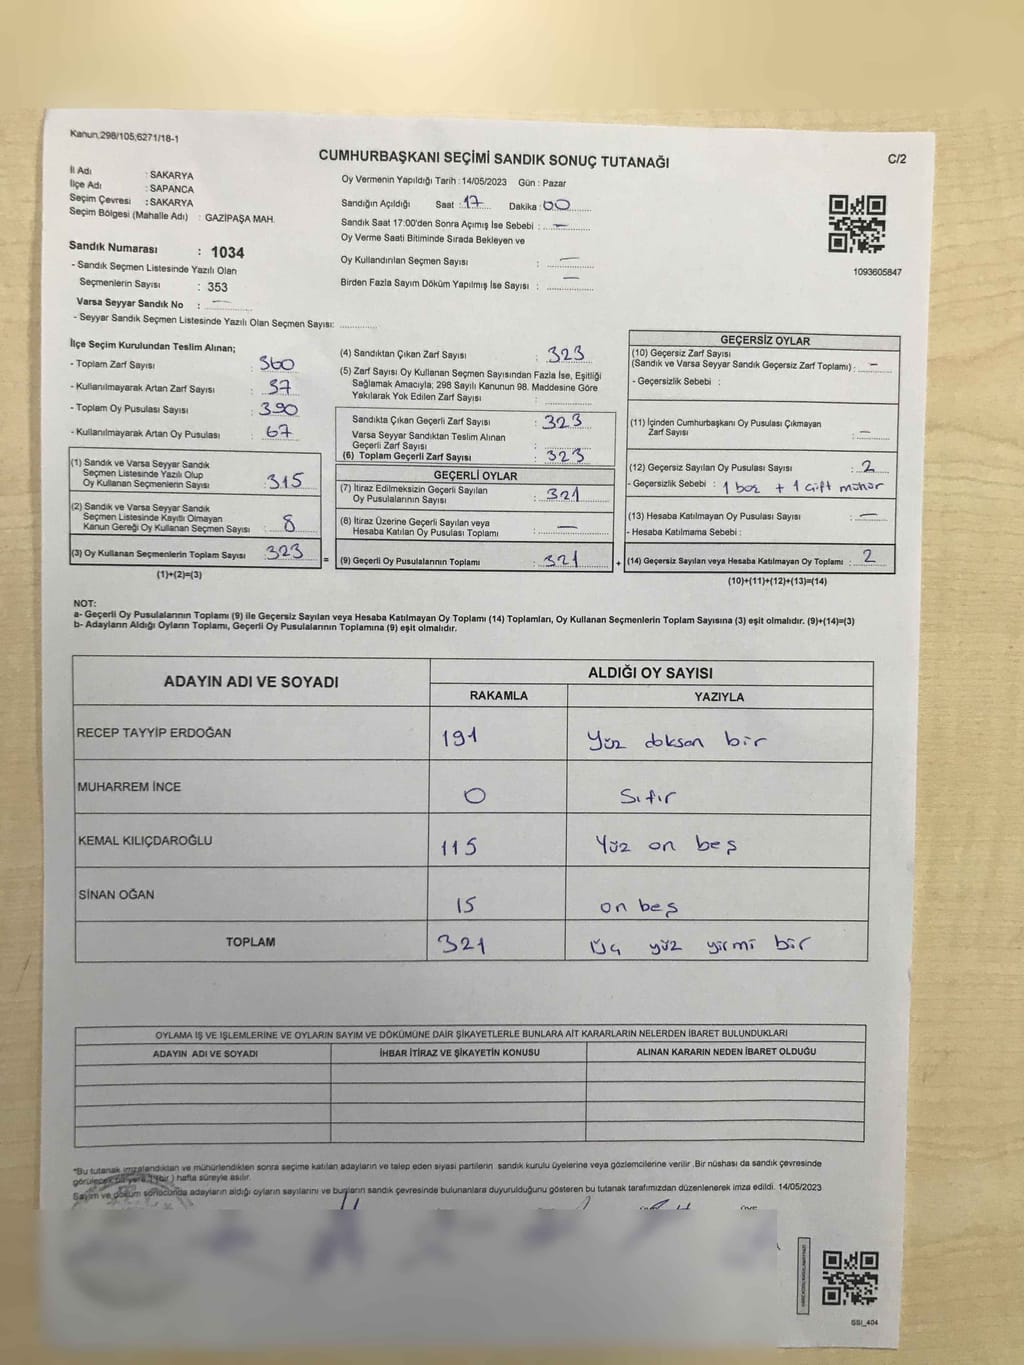 Kanun,298/105,6271/18-1
CUMHURBAŞKANI SEÇİMİ SANDIK SONUÇ TUTANAĞI
C/2
İl Adı : SAKARYA
İlçe Adı : SAPANCA
Seçim Çevresi : SAKARYA
Seçim Bölgesi (Mahalle Adı) : GAZİPAŞA MAH.
Sandık Numarası : 1034
- Sandık Seçmen Listesinde Yazılı Olan
Seçmenlerin Sayısı : 353
Varsa Seyyar Sandık No : —
- Seyyar Sandık Seçmen Listesinde Yazılı Olan Seçmen Sayısı:
Oy Vermenin Yapıldığı Tarih : 14/05/2023 Gün : Pazar
Sandığın Açıldığı Saat : 17 Dakika : 00
Sandık Saat 17:00'den Sonra Açımış İse Sebebi : —
Oy Verme Saati Bitiminde Sırada Bekleyen ve
Oy Kullandırılan Seçmen Sayısı : —
Birden Fazla Sayım Döküm Yapılmış İse Sayısı : —
1093605847
İlçe Seçim Kurulundan Teslim Alınan;
- Toplam Zarf Sayısı : 360
- Kullanılmayarak Artan Zarf Sayısı : 37
- Toplam Oy Pusulası Sayısı : 390
- Kullanılmayarak Artan Oy Pusulası : 67
(1) Sandık ve Varsa Seyyar Sandık
Seçmen Listesinde Yazılı Olup
Oy Kullanan Seçmenlerin Sayısı : 315
(2) Sandık ve Varsa Seyyar Sandık
Seçmen Listesinde Kayıtlı Olmayan
Kanun Gereği Oy Kullanan Seçmen Sayısı : 8
(3) Oy Kullanan Seçmenlerin Toplam Sayısı : 323
(1)+(2)=(3)
(4) Sandıktan Çıkan Zarf Sayısı : 323
(5) Zarf Sayısı Oy Kullanan Seçmen Sayısından Fazla İse, Eşitliği
Sağlamak Amacıyla; 298 Sayılı Kanunun 98. Maddesine Göre
Yakılarak Yok Edilen Zarf Sayısı :
Sandıkta Çıkan Geçerli Zarf Sayısı : 323
Varsa Seyyar Sandıktan Teslim Alınan
Geçerli Zarf Sayısı :
(6) Toplam Geçerli Zarf Sayısı : 323
GEÇERLİ OYLAR
(7) İtiraz Edilmeksizin Geçerli Sayılan
Oy Pusulalarının Sayısı : 321
(8) İtiraz Üzerine Geçerli Sayılan veya
Hesaba Katılan Oy Pusulası Toplamı : —
= (9) Geçerli Oy Pusulalarının Toplamı : 321 +
GEÇERSİZ OYLAR
(10) Geçersiz Zarf Sayısı
(Sandık ve Varsa Seyyar Sandık Geçersiz Zarf Toplamı) : —
- Geçersizlik Sebebi :
(11) İçinden Cumhurbaşkanı Oy Pusulası Çıkmayan
Zarf Sayısı : —
(12) Geçersiz Sayılan Oy Pusulası Sayısı : 2
- Geçersizlik Sebebi : 1 boş + 1 Çift mühür
(13) Hesaba Katılmayan Oy Pusulası Sayısı : —
- Hesaba Katılmama Sebebi :
(14) Geçersiz Sayılan veya Hesaba Katılmayan Oy Toplamı : 2
(10)+(11)+(12)+(13)=(14)
NOT:
a- Geçerli Oy Pusulalarının Toplamı (9) ile Geçersiz Sayılan veya Hesaba Katılmayan Oy Toplamı (14) Toplamları, Oy Kullanan Seçmenlerin Toplam Sayısına (3) eşit olmalıdır. (9)+(14)=(3)
b- Adayların Aldığı Oyların Toplamı, Geçerli Oy Pusulalarının Toplamına (9) eşit olmalıdır.
ADAYIN ADI VE SOYADI ALDIĞI OY SAYISI
RAKAMLA YAZIYLA
RECEP TAYYİP ERDOĞAN 191 Yüz doksan bir
MUHARREM İNCE 0 Sıfır
KEMAL KILIÇDAROĞLU 115 Yüz on beş
SİNAN OĞAN 15 on beş
TOPLAM 321 Üç yüz yirmi bir
OYLAMA İŞ VE İŞLEMLERİNE VE OYLARIN SAYIM VE DÖKÜMÜNE DAİR ŞİKAYETLERLE BUNLARA AİT KARARLARIN NELERDEN İBARET BULUNDUKLARI
ADAYIN ADI VE SOYADI İHBAR İTİRAZ VE ŞİKAYETİN KONUSU ALINAN KARARIN NEDEN İBARET OLDUĞU
*Bu tutanak imzalandıktan ve mühürlendikten sonra seçime katılan adayların ve talep eden siyasi partilerin sandık kurulu üyelerine veya gözlemcilerine verilir .Bir nüshası da sandık çevresinde
görülecek bir yere 1 (bir ) hafta süreyle asılır.
Sayım ve döküm sonucunda adayların aldığı oyların sayılarını ve bunların sandık çevresinde bulunanlara duyurulduğunu gösteren bu tutanak tarafımızdan düzenlenerek imza edildi. 14/05/2023
SSI_404